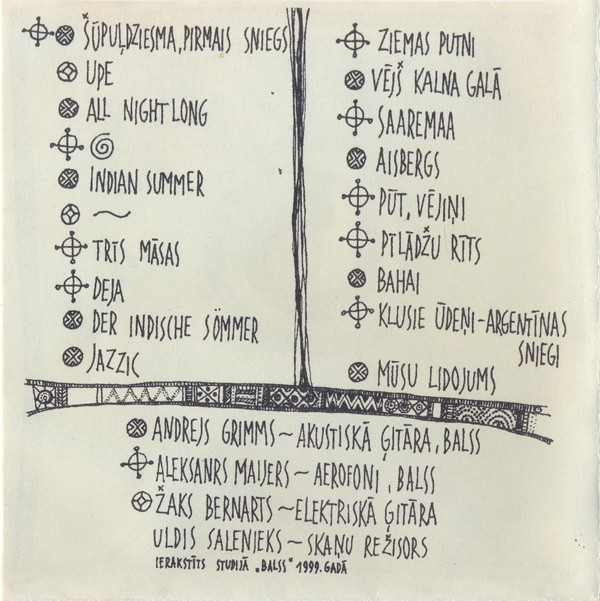 ŠŪPUĻDZIESMA, PIRMAIS SNIEGS
UPE
ALL NIGHT LONG
INDIAN SUMMER
~
TRĪS MĀSAS
DEJA
DER INDISCHE SÖMMER
JAZZIC
ZIEMAS PUTNI
VĒJŠ KALNA GALĀ
SAAREMAA
AISBERGS
PŪT, VĒJIŅI
PĪLĀDŽU RĪTS
BAHAI
KLUSIE ŪDEŅI-ARGENTĪNAS
SNIEGI
MŪSU LIDOJUMS
ANDREJS GRIMMS ~ AKUSTISKĀ ĢITĀRA, BALSS
ALEKSANRS MAIJERS ~ AEROFONI, BALSS
ŽAKS BERNARTS ~ ELEKTRISKĀ ĢITĀRA
ULDIS SALENIEKS ~ SKAŅU REŽISORS
IERAKSTĪTS STUDIJĀ „BALSS" 1999. GADĀ